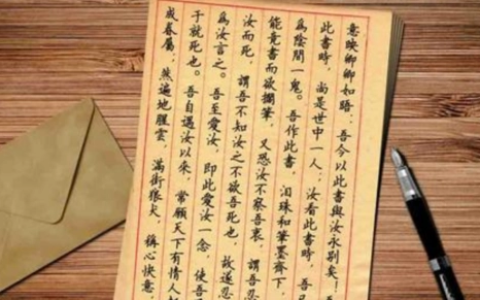 意映卿卿如晤：吾今以此書與汝永别矣！
此書時，尚是世中一人；汝看此書時，吾
為陰間一鬼。吾作此書，泪珠和筆墨齊下，
能竟書而欲擱筆，又恐汝不察吾衷，謂吾忍
汝而死，謂吾不知汝之不欲吾死也，故遂忍
為汝言之。吾至愛汝，即此愛汝一念，使吾
于就死也。吾自遇汝以來，常願天下有情人
成眷屬；然遍地腥雲，滿街狼犬，稱心快意，